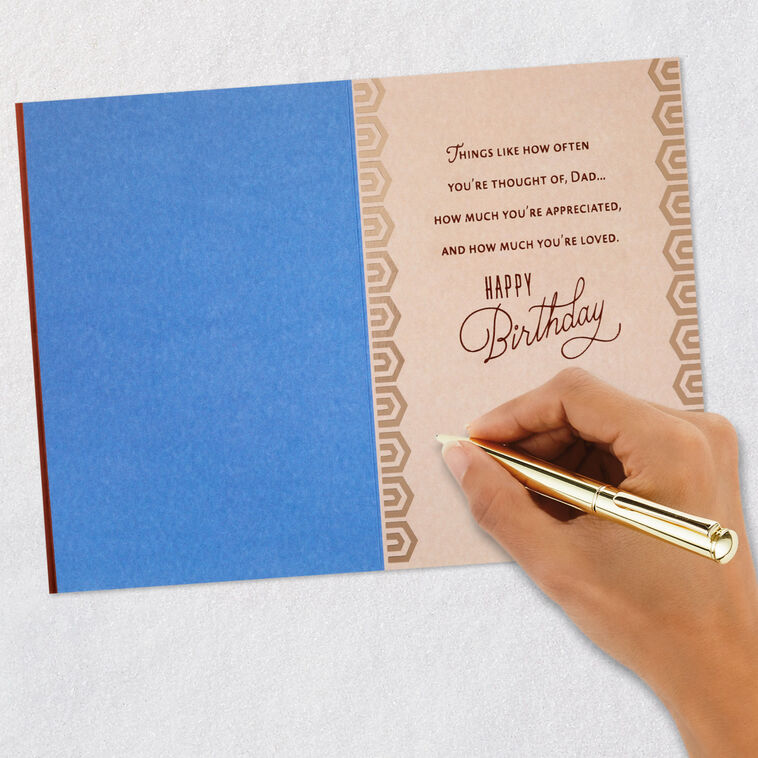 Things like how often
you're thought of, Dad...
how much you're appreciated,
and how much you're loved.
HAPPY
Birthday